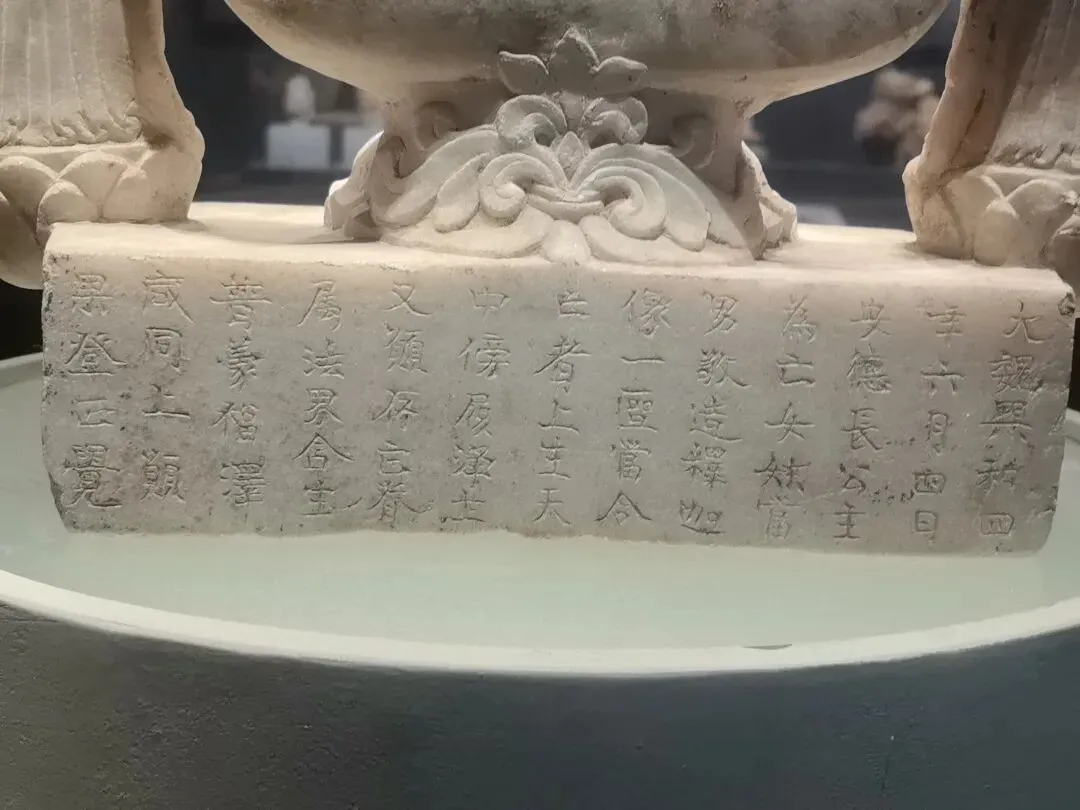 大魏興和四
年六月四日
安德長公主
為亡女當
男敬造釋迦
像一區當令
亡者上生天
中傍履淨土
又願存亡眷
属法界含生
普蒙福澤
咸同上願
果登正覺